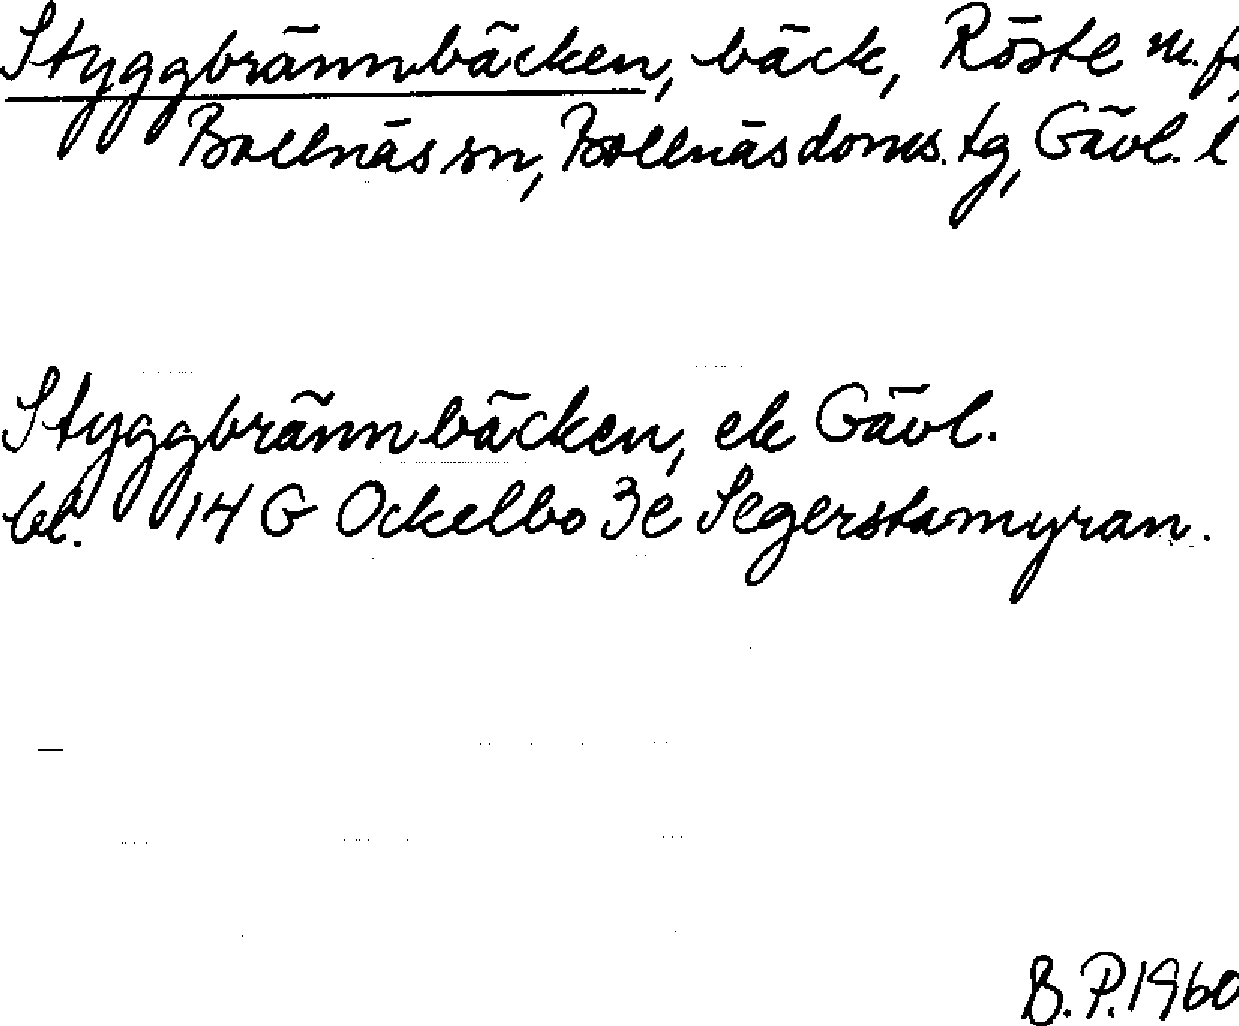 Styggbrännbäcken, bäck, Röste m. fl,
Bollnäs sn, Bollnäs doms. tg, Gävl. l
Styggbrännbäcken, ek Gävl.
bl. 14 G Ockelbo 3e Segerstamyran.
B. P. 1960